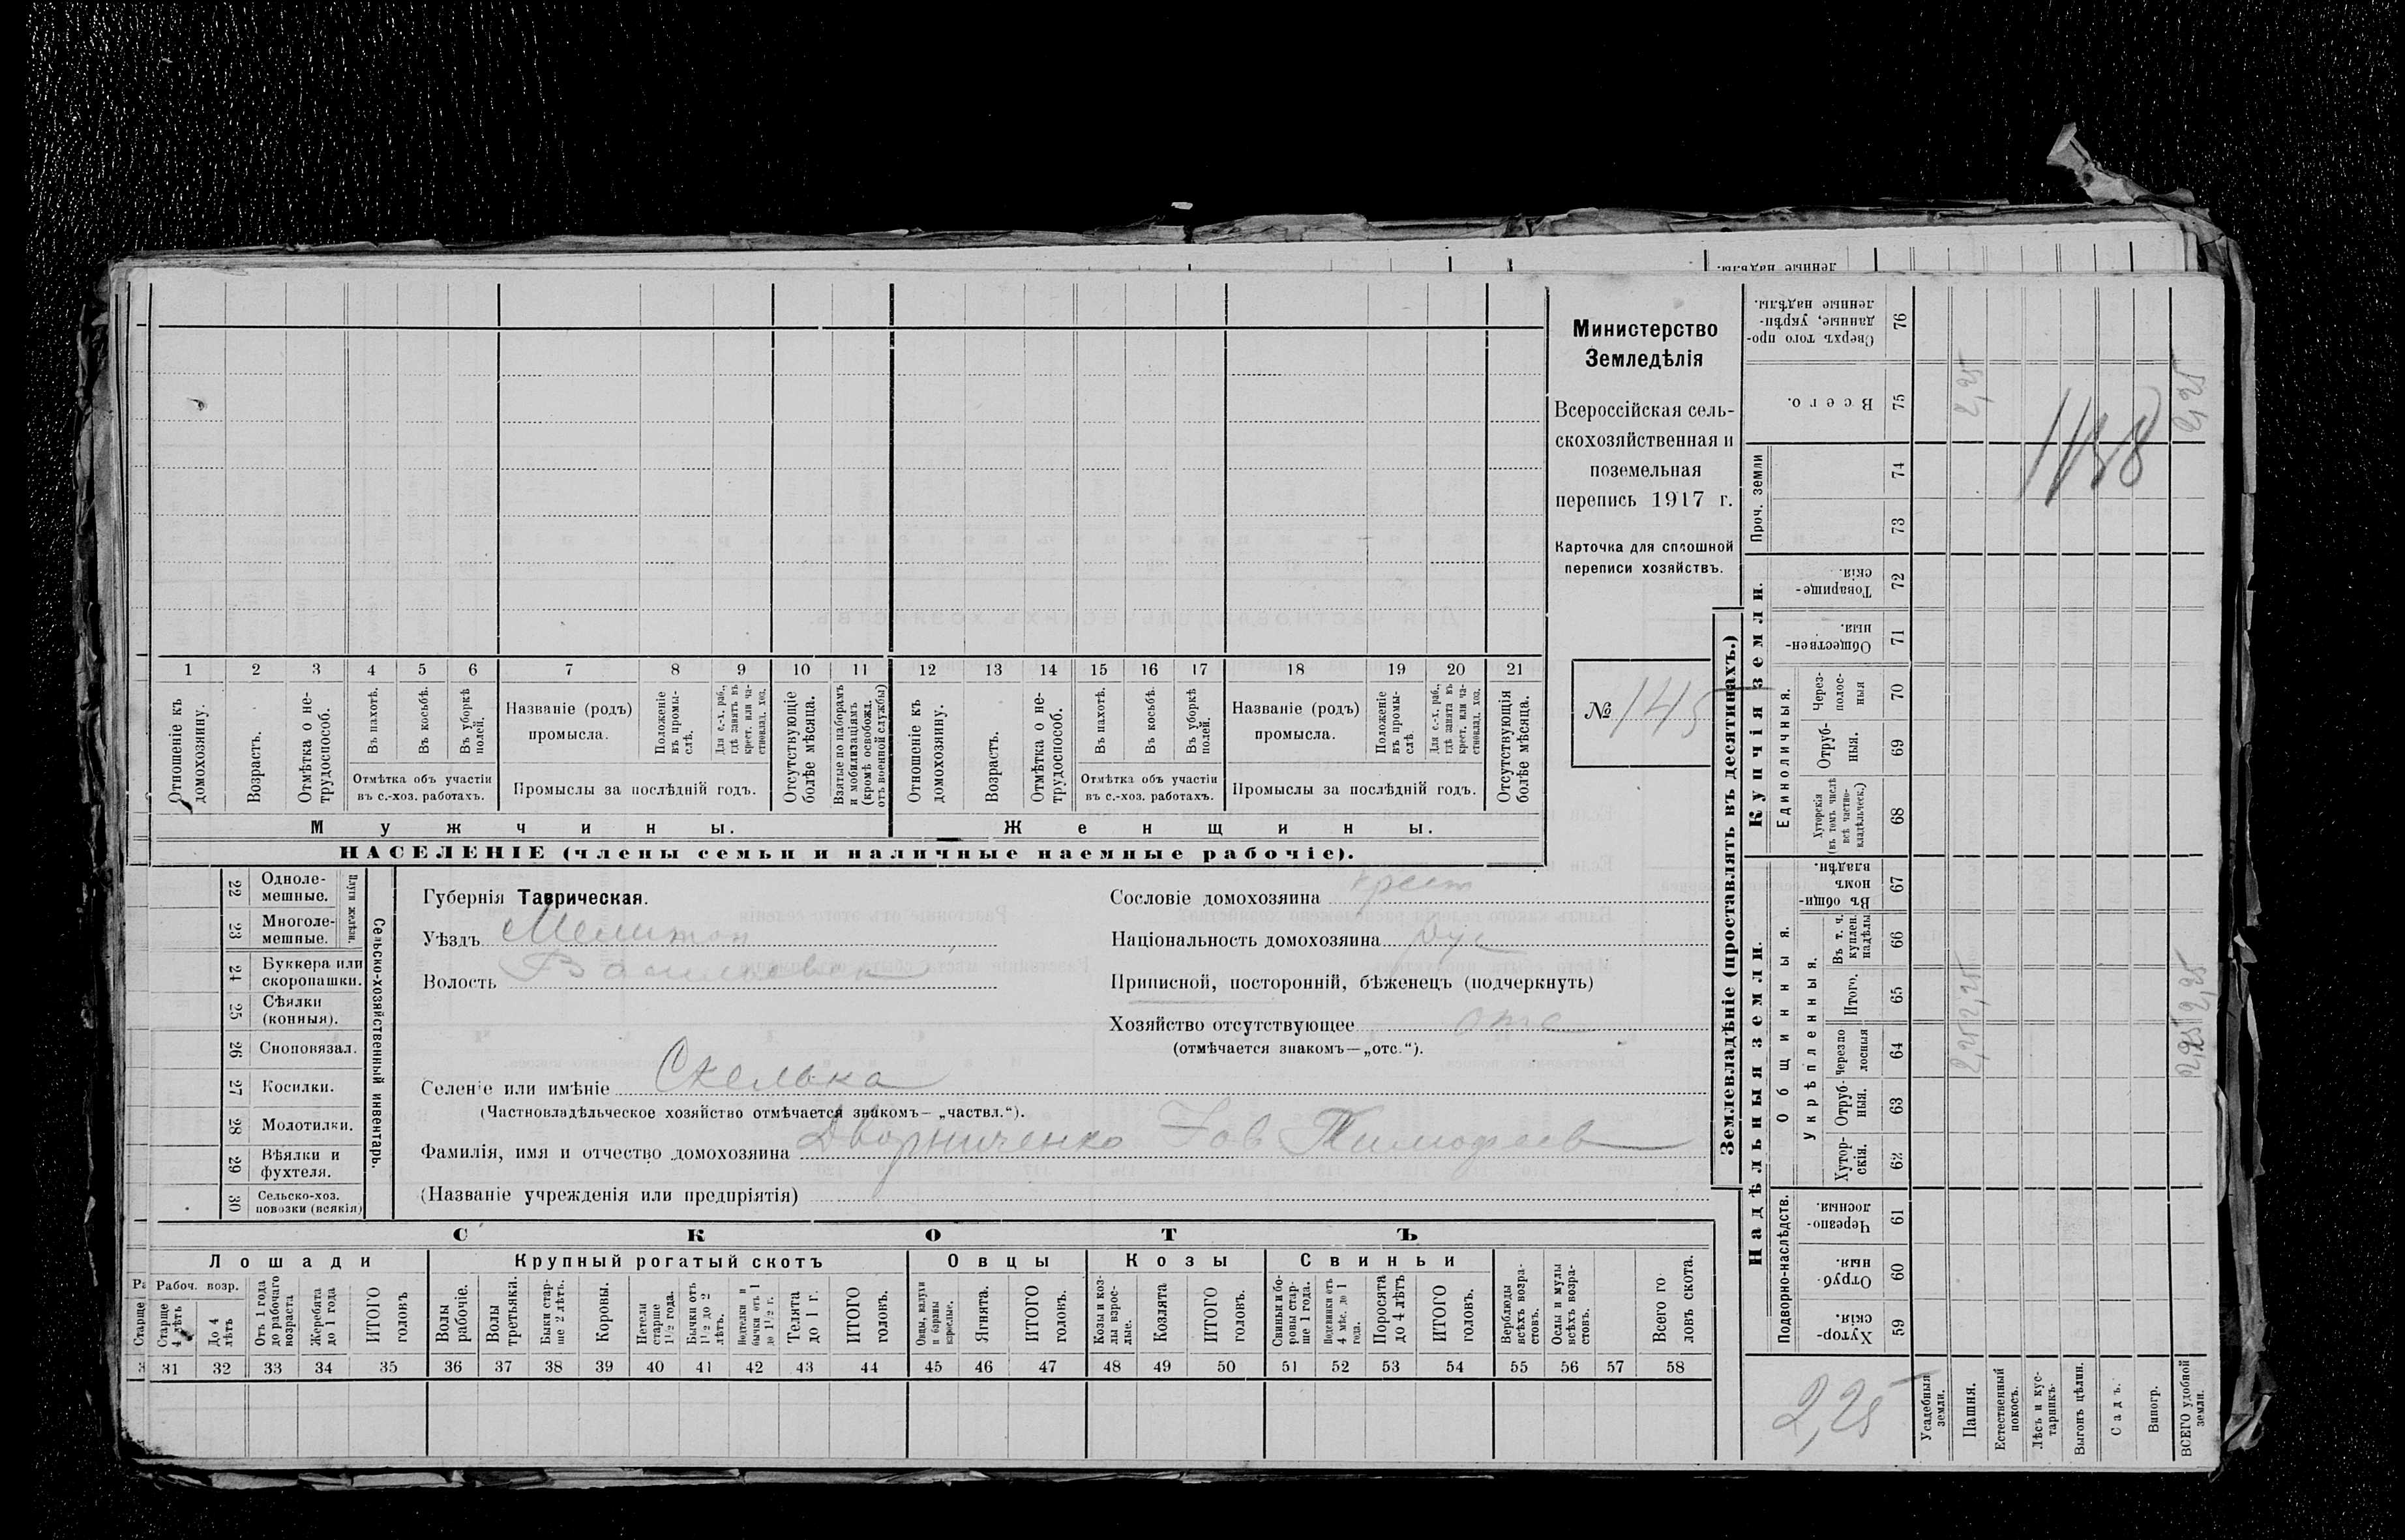 Министерство
Земледѣлія
Всероссійская сель-
скохозяйственная и
поземельная
перепись 1917 г.
Карточка для сплошной
переписи хозяйствъ.
№ 145
1 2 3 4 5 6 7 8 9 10 11 12 13 14 15 16 17 18 19 20 21
Отношеніе къ домохозяину.
Возрастъ.
Отмѣтка о не-трудоспособ.
Въ пахотѣ.
Въ косьбѣ.
Въ уборкѣ полей.
Отмѣтка объ участіи
въ с.-хоз. работахъ.
Названіе (родъ)
промысла.
Положеніе въ промы-слѣ.
Для с.-х. раб., гдѣ занятъ въ крест. или ча-стновлад. хоз.
Промыслы за послѣдній годъ.
Отсутствующіе болѣе мѣсяца.
Взятые по наборамъ и мобилизаціямъ (кромѣ освобожд. отъ военной службы)
Отношеніе къ домохозяину.
Возрастъ.
Отмѣтка о не-трудоспособ.
Въ пахотѣ.
Въ косьбѣ.
Въ уборкѣ полей.
Отмѣтка объ участіи
въ с.-хоз. работахъ.
Названіе (родъ)
промысла.
Положеніе въ промы-слѣ.
Для с.-х. раб., гдѣ занята въ крест. или ча-стновлад. хоз.
Промыслы за послѣдній годъ.
Отсутствующія болѣе мѣсяца.
Мужчины.
Женщины.
НАСЕЛЕНІЕ (члены семьи и наличные наемные рабочіе).
22 Одноле-мешные.
23 Многоле-мешные.
Плуги желѣзн.
24 Буккера или скоропашки.
25 Сѣялки (конныя).
26 Сноповязал.
27 Косилки.
28 Молотилки.
29 Вѣялки и фухтеля.
30 Сельско-хоз. повозки (всякія)
Сельско-хозяйственный инвентарь.
Губернія Таврическая.
Уѣздъ Мелитоп
Волость Васильевск
Сословіе домохозяина крест
Національность домохозяина рус
Приписной, посторонній, бѣженецъ (подчеркнуть)
Хозяйство отсутствующее отс
(отмѣчается знакомъ—„отс.“).
Селеніе или имѣніе Скелька
(Частновладѣльческое хозяйство отмѣчается знакомъ— „частвл.“).
Фамилія, имя и отчество домохозяина Дворниченко Іов Тимофеев
(Названіе учрежденія или предпріятія)
СКОТЪ
Лошади
Крупный рогатый скотъ
Овцы
Козы
Свиньи
Рабоч. возр.
Старше 4 лѣтъ
До 4 лѣтъ
Отъ 1 года до рабочаго возраста
Жеребята до 1 года
ИТОГО головъ
Волы рабочіе.
Волы третьяки.
Быки стар-ше 2 лѣтъ.
Коровы.
Нетели старше 1½ года.
Бычки отъ 1½ до 2 лѣтъ.
Подтелки и бычки отъ 1 до 1½ г.
Телята до 1 г.
ИТОГО головъ.
Овцы, валухи и бараны взрослые.
Ягнята.
ИТОГО головъ.
Козы и коз-лы взрос-лые.
Козлята
ИТОГО головъ.
Свиньи и бо-ровы стар-ше 1 года.
Подсвинки отъ 4 мѣс. до 1 года.
Поросята до 4 лѣтъ
ИТОГО головъ.
Верблюды всѣхъ возра-стовъ.
Ослы и мулы всѣхъ возра-стовъ.
Всего го ловъ скота.
31 32 33 34 35 36 37 38 39 40 41 42 43 44 45 46 47 48 49 50 51 52 53 54 55 56 57 58
Землевладѣніе (проставлять въ десятинахъ.)
Надѣльныя земли.
Купчія земли.
Подворно-наслѣдств.
Общинныя.
Укрѣпленныя.
Единоличныя.
Проч. земли
76 Сверхъ того про-данные, укрѣп-ленные надѣлы.
75 Всего. 2,25 2,25
1138
74
73
72 Товарище-скія.
71 Обществен-ныя.
70 Через-полос-ныя
69 Отруб-ныя.
68 Хуторскія (въ томъ числѣ всѣ частно-владѣльческ.)
67 Въ общи-номъ владѣн.
66 Въ т. ч. куплен. надѣлы
65 Итого. 2,25 2,25
64 Черезпо лосныя 2,25 2,25
63 Отруб-ныя.
62 Хутор-скія.
61 Черезпо-лосныя.
60 Отруб-ныя.
59 Хутор-скія.
2,25
Усадебныя земли.
Пашня.
Естественный покосъ.
Лѣсъ и кус-тарникъ.
Выгонъ цѣлин.
Садъ.
Виногр.
ВСЕГО удобной земли.